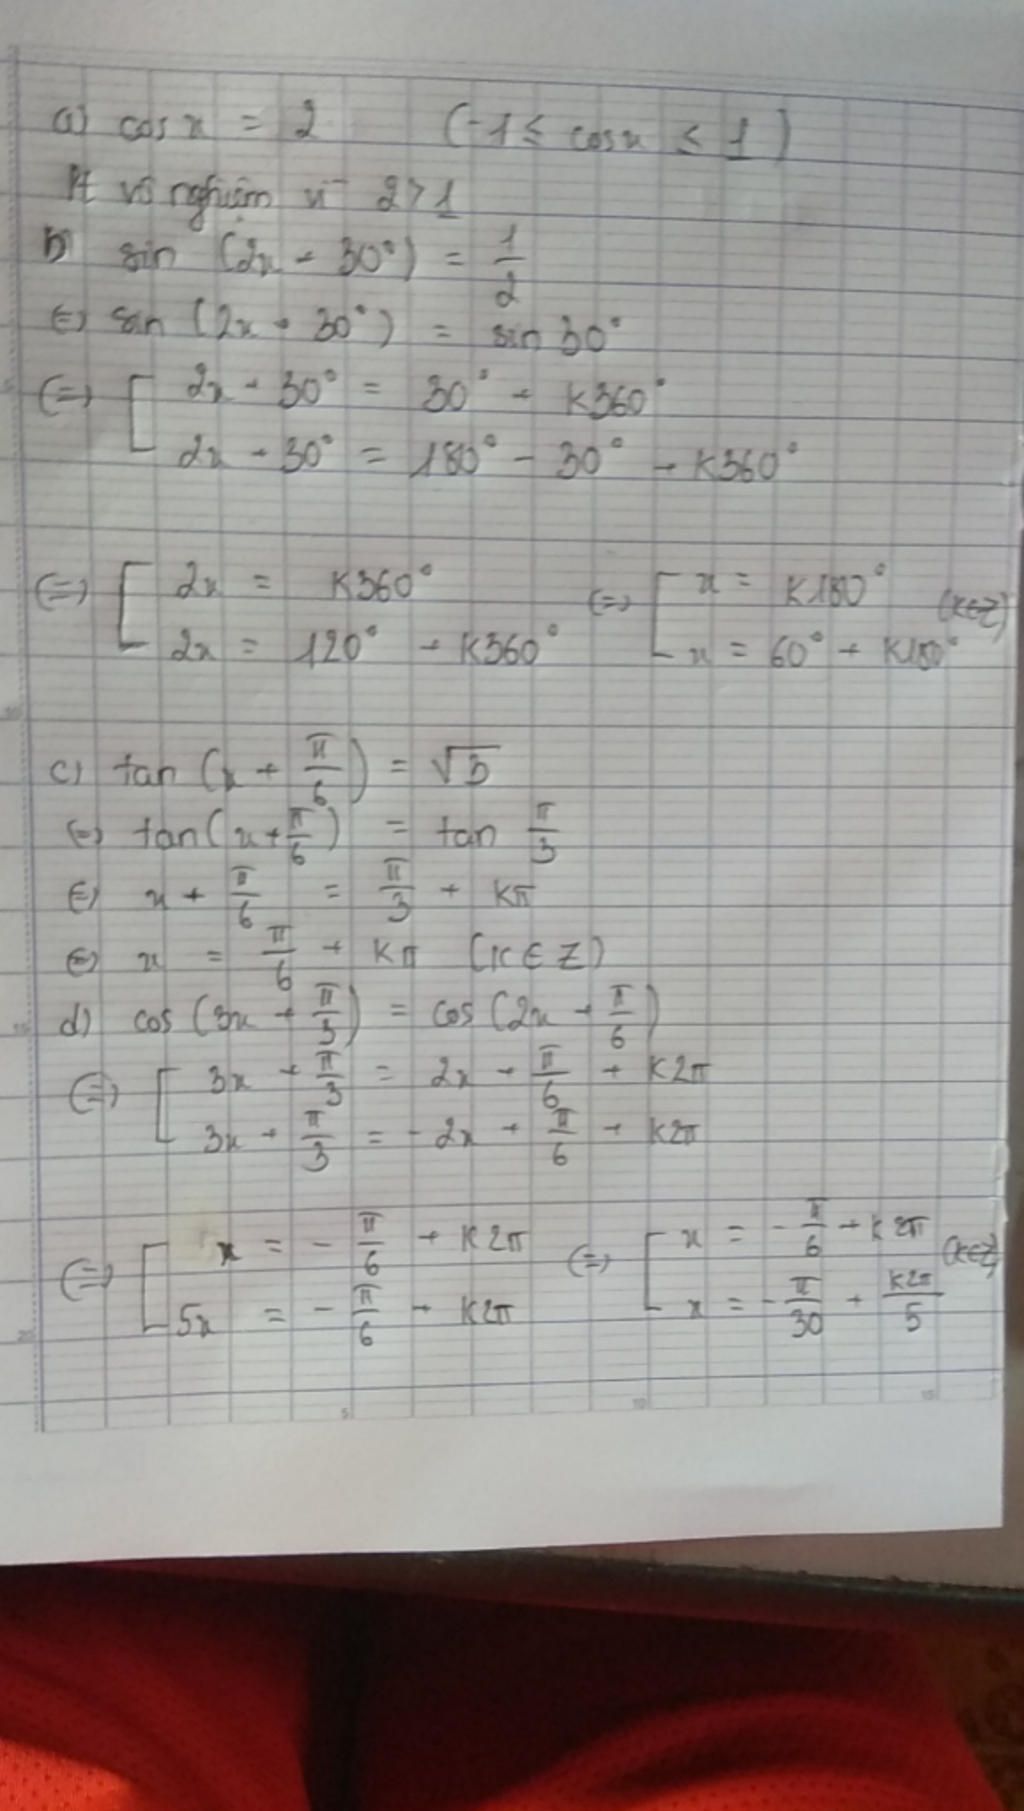 a) cos x = 2 (-1 ≤ cos x ≤ 1)
Pt vô nghiệm vì 2 > 1
b) sin (2x + 30°) = 1/2
(=) sin (2x + 30°) = sin 30°
(=) [ 2x + 30° = 30° + K360°
2x + 30° = 180° - 30° + K360°
(=) [ 2x = K360° (=) [ x = K180° (K∈Z)
2x = 120° + K360° x = 60° + K180°
c) tan (x + π/6) = √3
(=) tan (x + π/6) = tan π/3
(=) x + π/6 = π/3 + Kπ
(=) x = π/6 + Kπ (K ∈ Z)
d) cos (3x + π/3) = cos (2x + π/6)
(=) [ 3x + π/3 = 2x + π/6 + K2π
3x + π/3 = - 2x + π/6 + K2π
(=) [ x = - π/6 + K2π (=) [ x = - π/6 + K2π (K∈Z)
5x = - π/6 + K2π x = - π/30 + K2π/5